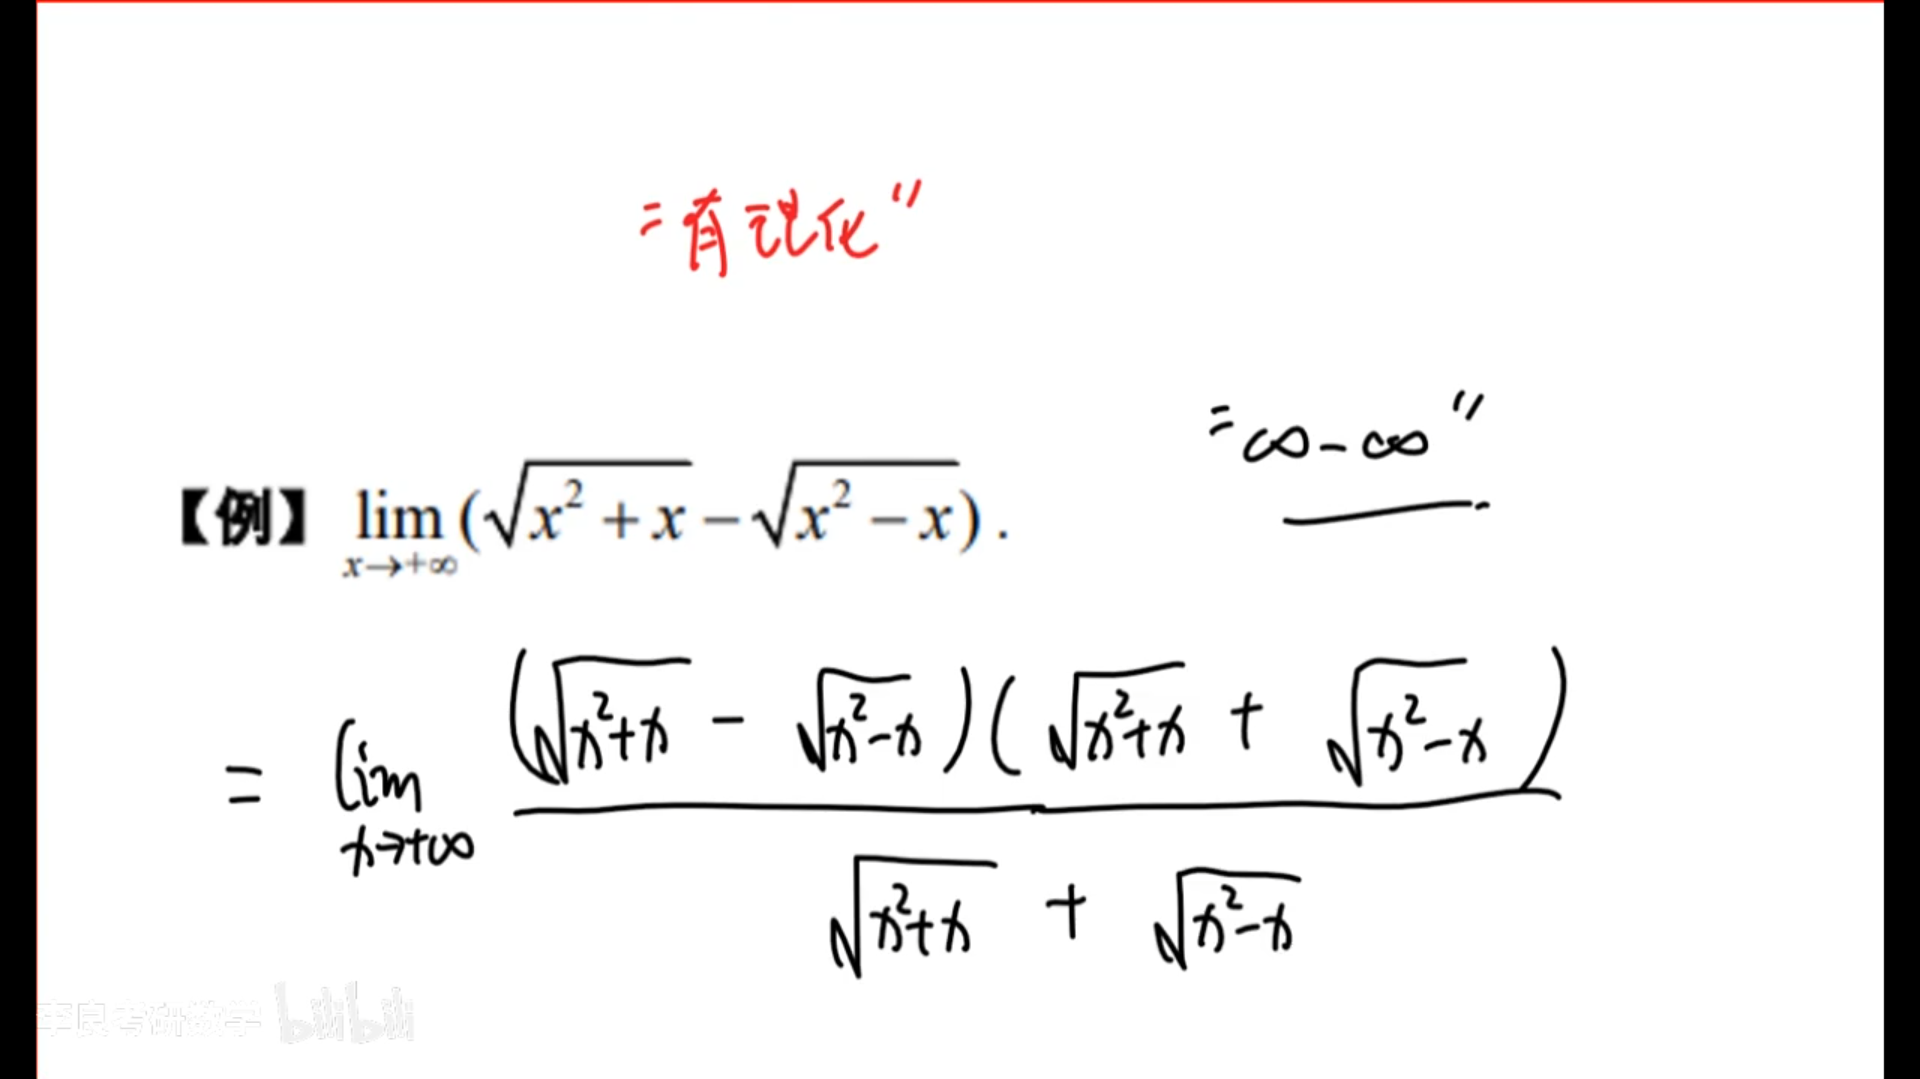 "有理化"
"∞-∞"
【例】 lim x→+∞ (√(x² + x) − √(x² − x)) .
= lim x→+∞ (√(x²+x) - √(x²-x))(√(x²+x) + √(x²-x))
√(x²+x) + √(x²-x)
李良考研数学 bilibili